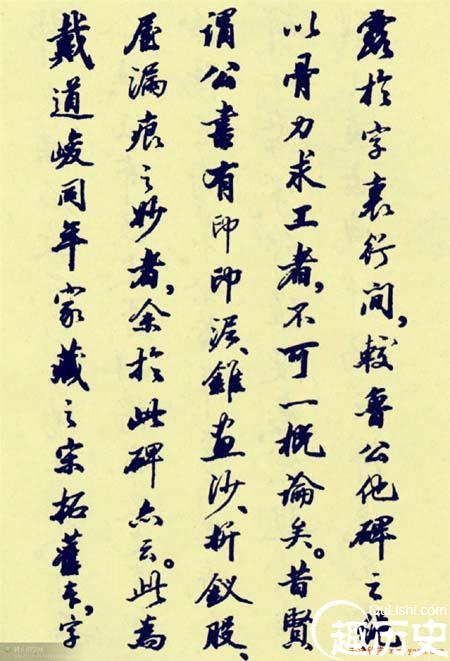 露於字裏行間，較魯公他碑之
以骨力求工者，不可一概論矣。昔賢
謂公書有印印泥、錐畫沙、折釵股、
屋漏痕之妙者，余於此碑亦云。此為
戴道峻同年家藏之宋拓舊本，字
QuLishi.com
趣历史